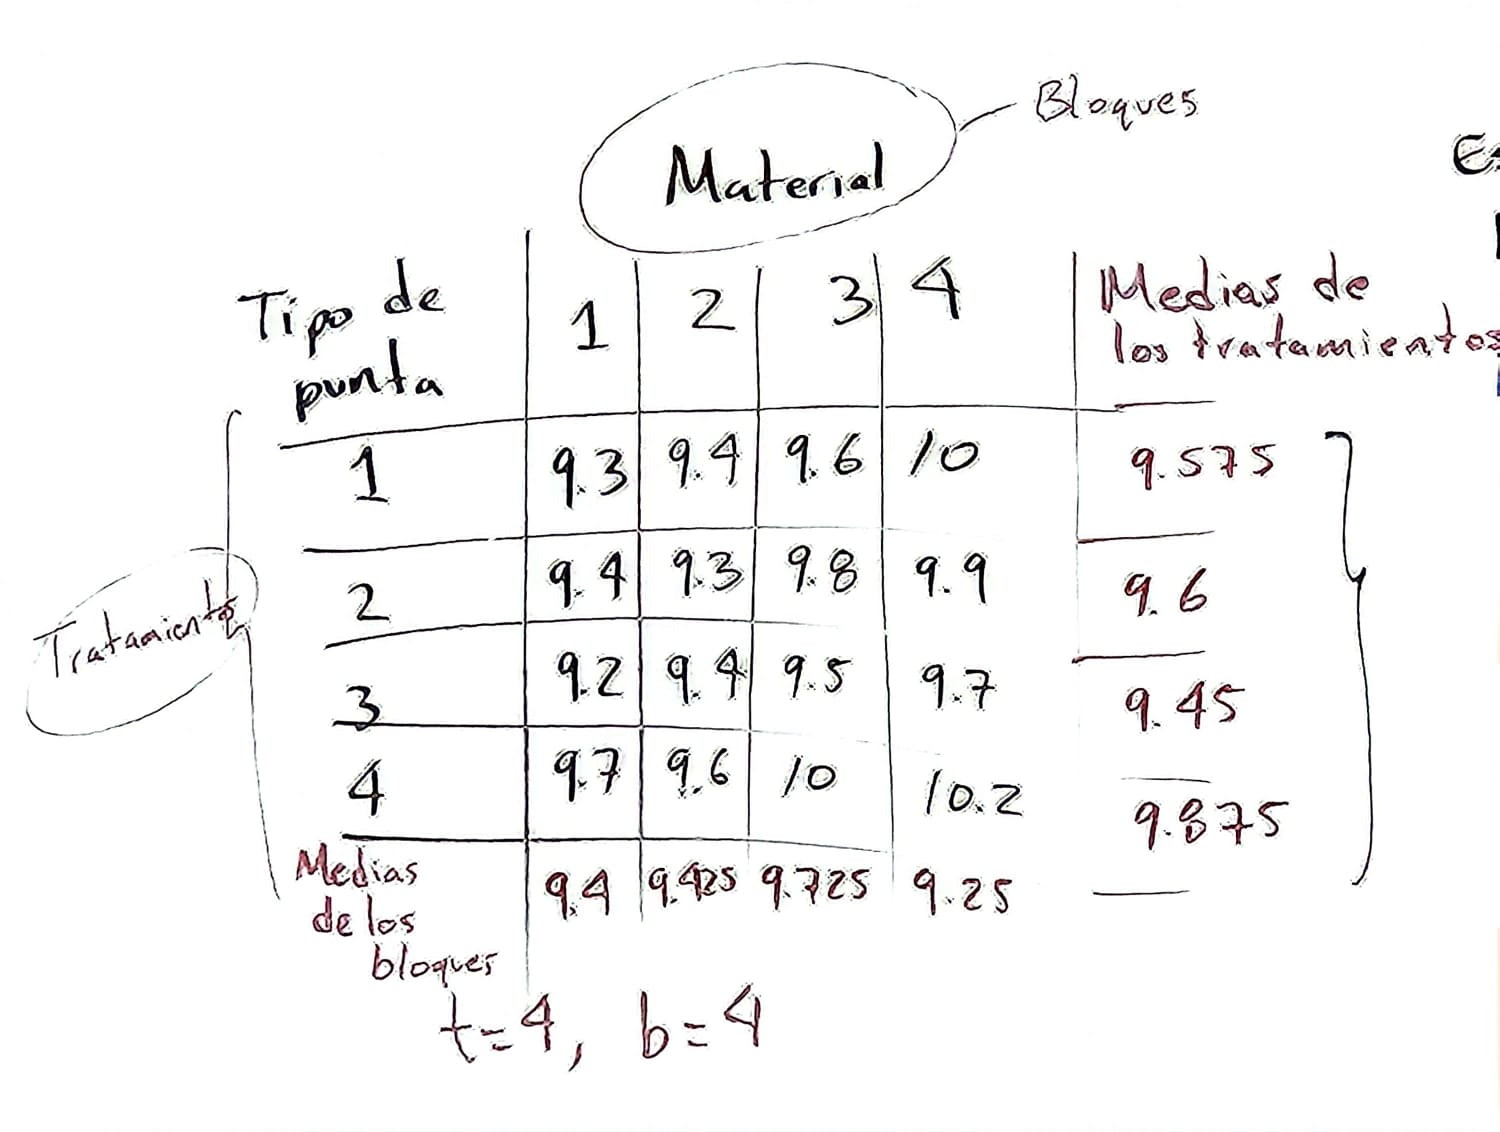 Bloques
Material
Tipo de punta 1 2 3 4 Medias de los tratamientos
1 9.3 9.4 9.6 10 9.575
2 9.4 9.3 9.8 9.9 9.6
3 9.2 9.4 9.5 9.7 9.45
4 9.7 9.6 10 10.2 9.875
Medias de los bloques 9.4 9.425 9.725 9.25
Tratamientos
t=4, b=4